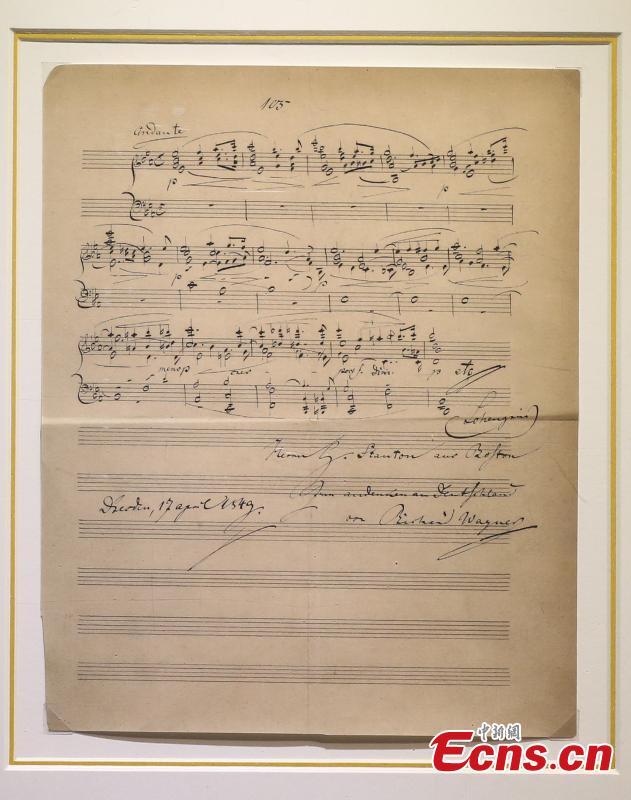 105
Andante
p p
p p
menop cres - - poco f. dim. p etc
(Lohengrin)
Herrn G. Stanton aus Boston
zum andenken an Deutschland
Dresden, 17 april 1849.
von Richard Wagner
中新網
Ecns.cn